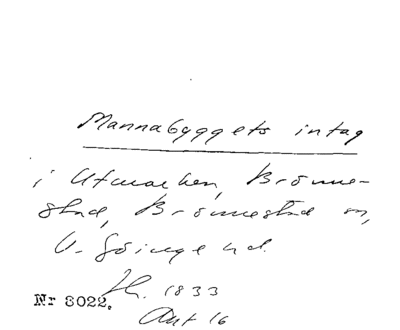 Mannabyggets intag
i Utmarken, Brönne-
stad, Brönnestad sn,
V. Göinge hd.
Nr 3022. Sk. 1833
Akt 16